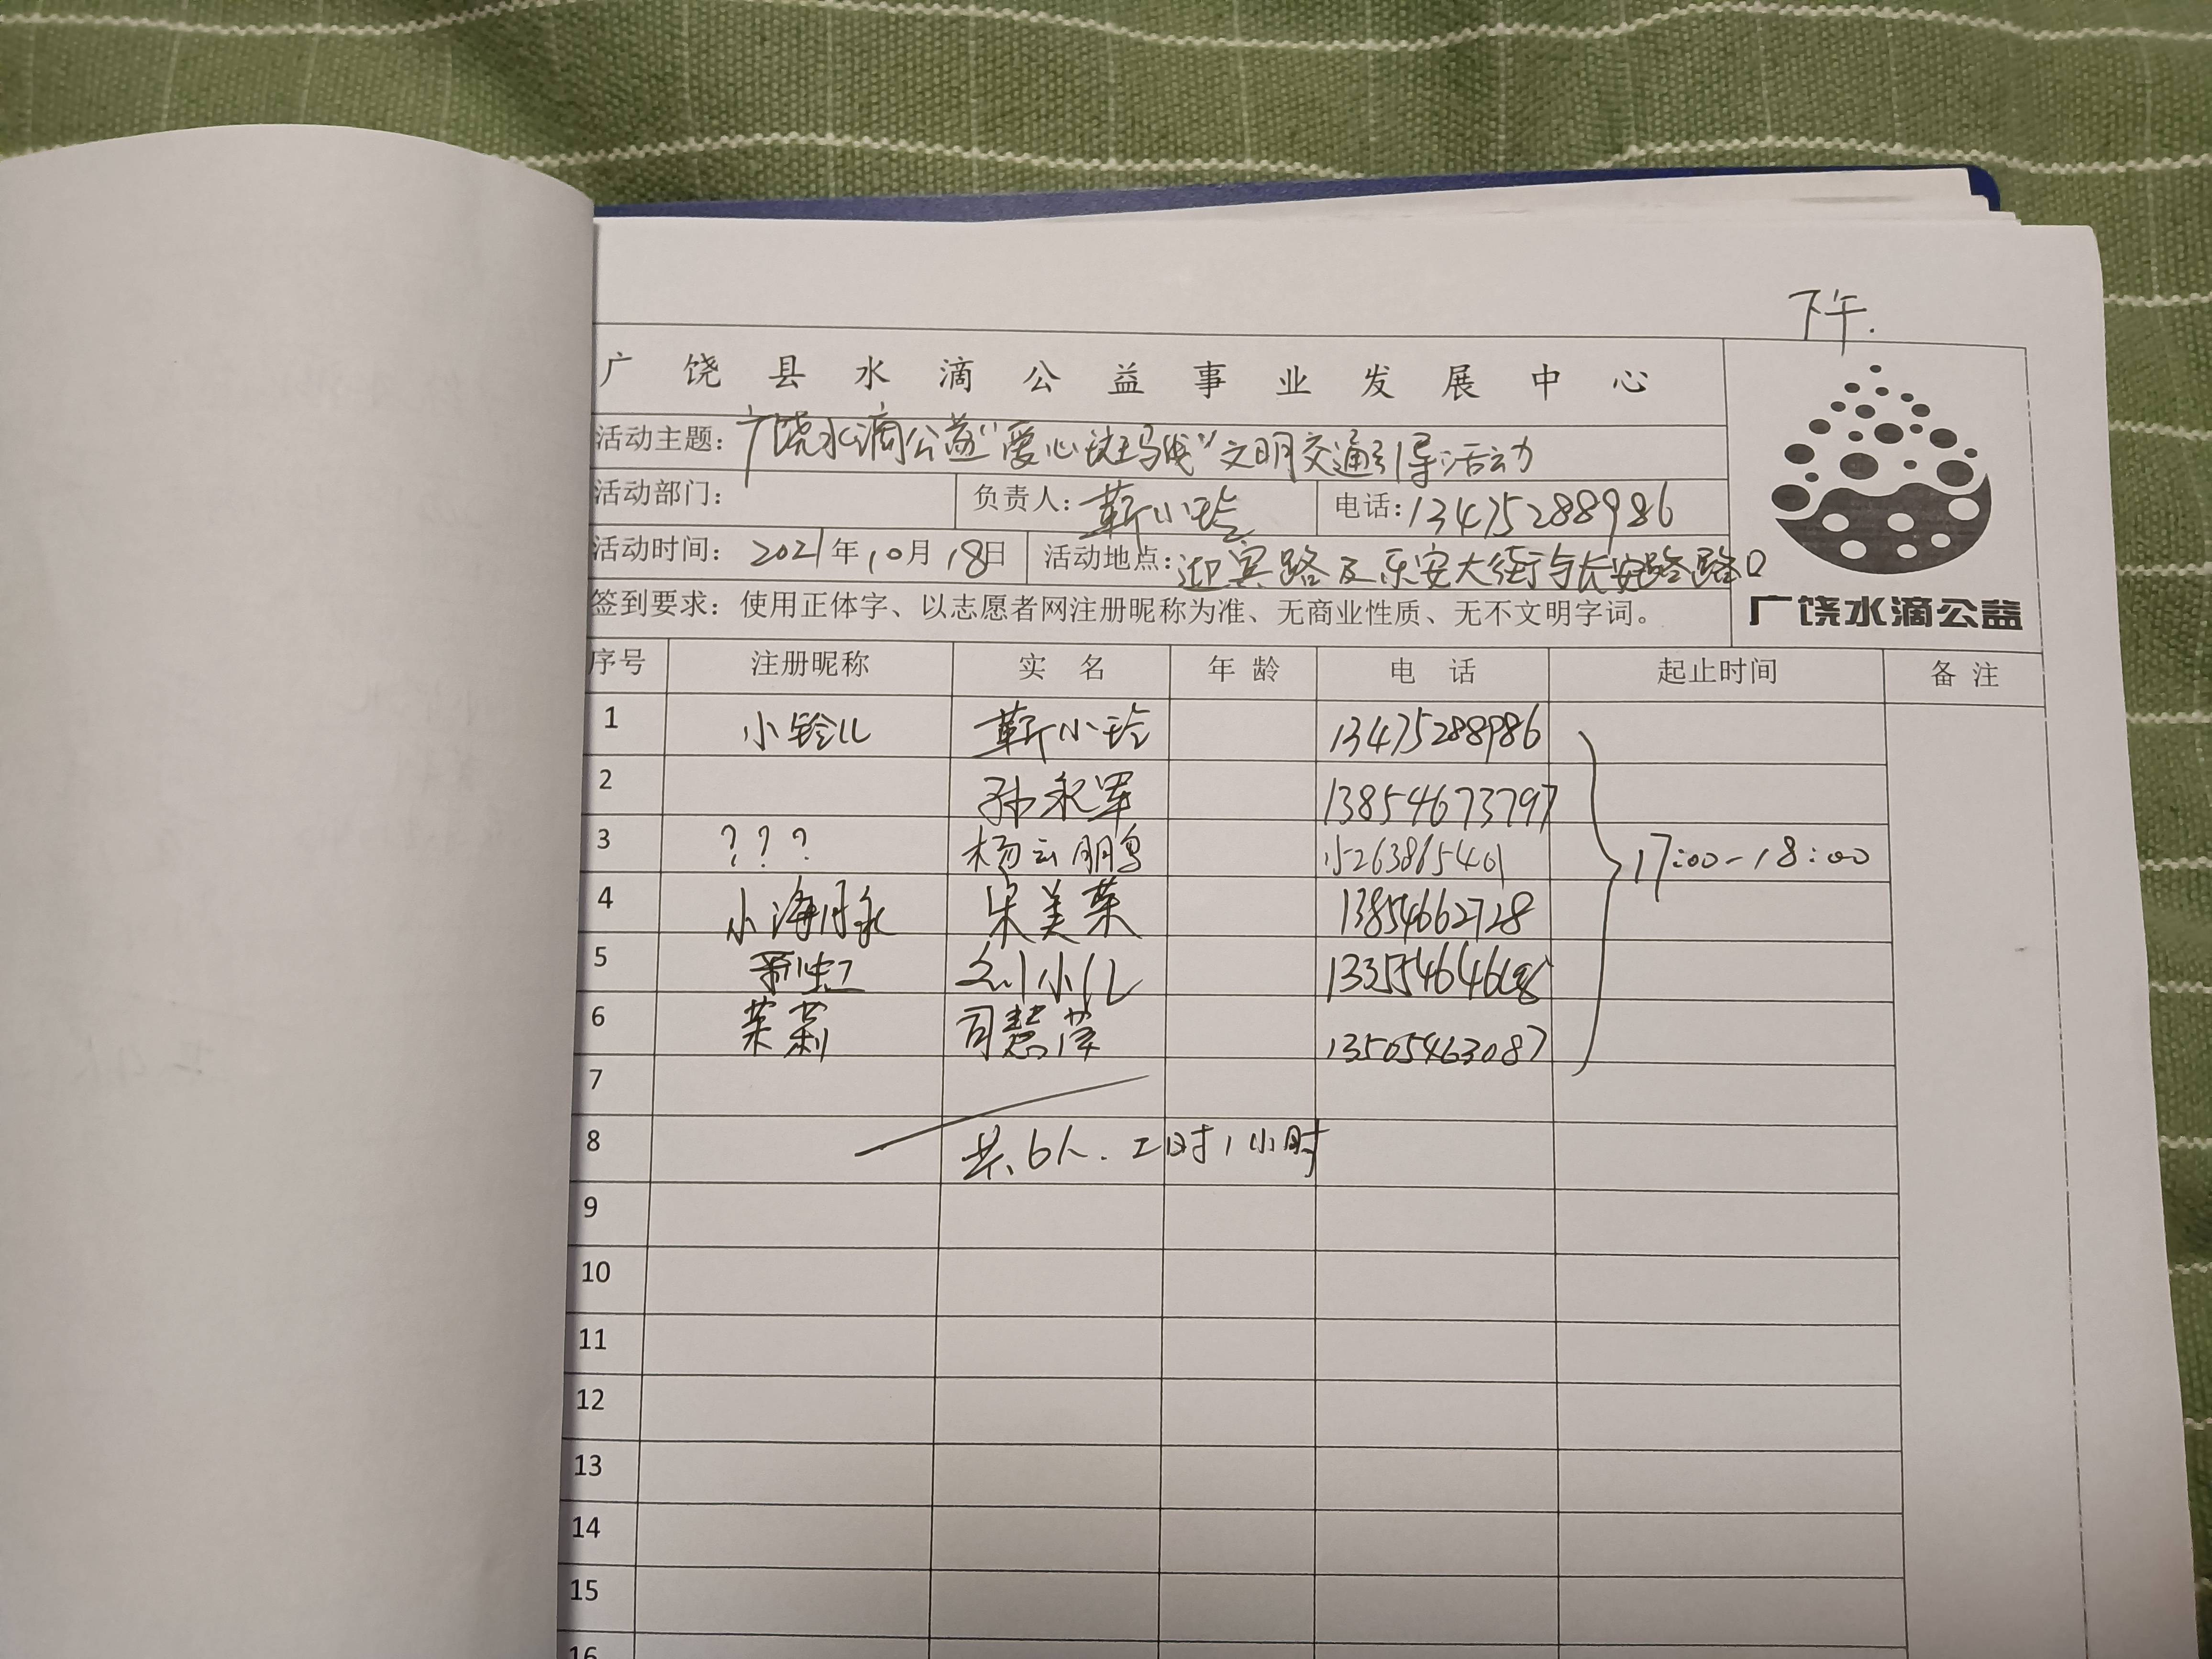 下午.
广饶县水滴公益事业发展中心
活动主题: 广饶水滴公益"爱心斑马线"文明交通引导活动
活动部门: 负责人: 靳小玲 电话: 13475288986
活动时间: 2021年10月18日 活动地点: 迎宾路及乐安大街与长安路路口
广饶水滴公益
签到要求: 使用正体字、以志愿者网注册昵称为准、无商业性质、无不文明字词。
序号 注册昵称 实名 年龄 电话 起止时间 备注
1 小铃儿 靳小玲 13475288986
2 孙永军 13854673797
3 ??? 杨云鹏 15263865401 17:00-18:00
4 小海 宋美荣 13854662728
5 刘小儿
6 茉莉 司慧萍 13505463087
7
8 共6人. 工时1小时
9
10
11
12
13
14
15
16